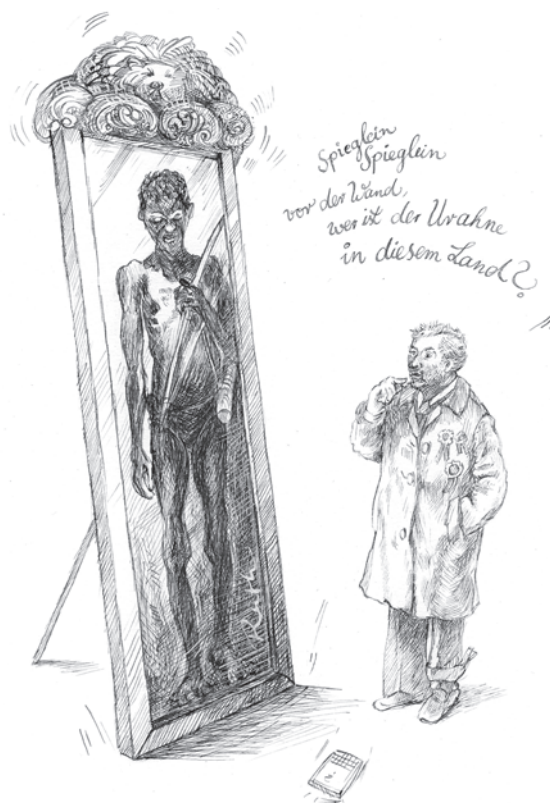 Spieglein
Spieglein
vor der Wand,
wer ist der Urahne
in diesem Land?
Ruth